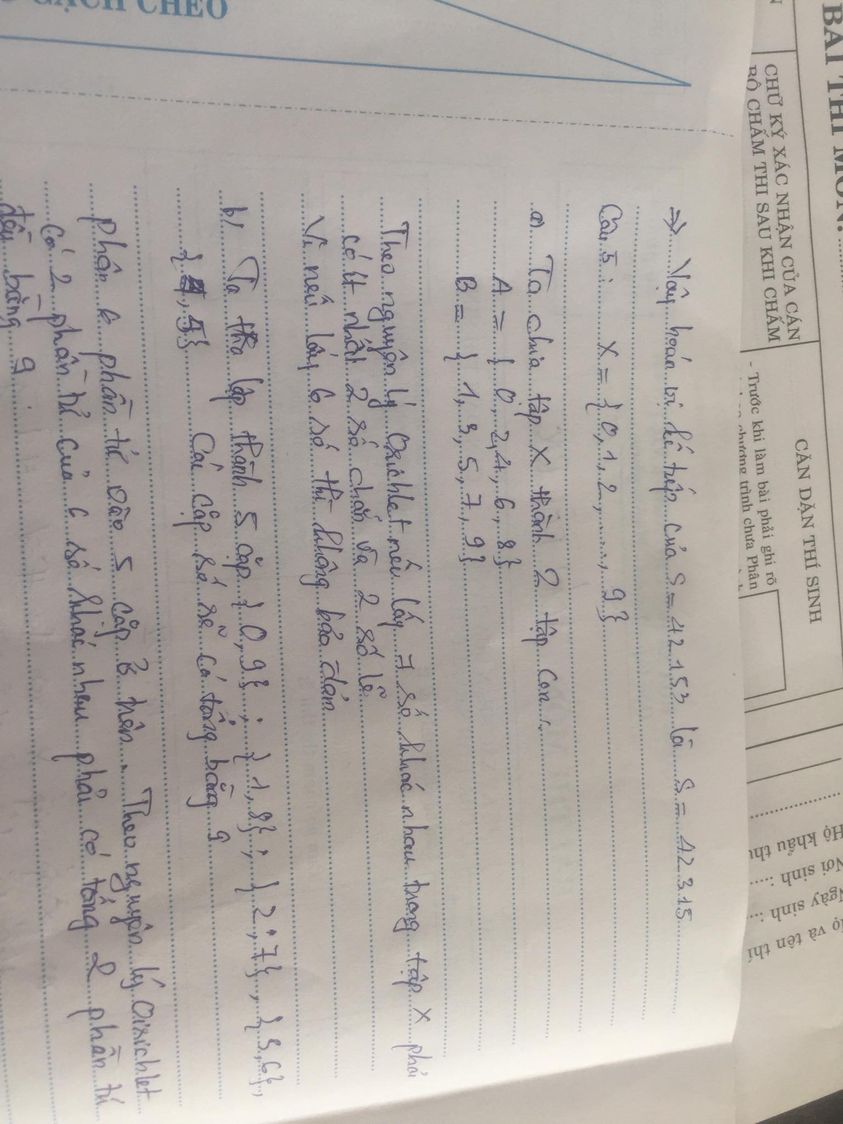 GẠCH CHÉO
BÀI THI MÔN:
CHỮ KÝ XÁC NHẬN CỦA CÁN
BỘ CHẤM THI SAU KHI CHẤM
CĂN DẶN THÍ SINH
- Trước khi làm bài phải ghi rõ
chương trình chưa Phân
Hộ khẩu thư
Nơi sinh :
Ngày sinh :
Họ và tên thí
=> Vậy hoán vị kế tiếp của S = 42153 là S = 42315
Câu 5: X = {0,1,2,...., 9}
a) Ta chia tập X thành 2 tập con :
A = { 0, 2, 4, 6, 8}
B = { 1, 3, 5, 7, 9}
Theo nguyên lý Đirichlet nếu lấy 7 số khác nhau trong tập X phải
có ít nhất 2 số chẵn và 2 số lẻ
Vì nếu lấy 6 số thì không bảo đảm
b) Ta lập thành 5 cặp { 0, 9} ; { 1, 8} ; { 2 ; 7} , { 3, 6} ,
{ 4, 5} Các cặp số sẽ có tổng bằng 9
phân 6 phần tử vào 5 cặp ở trên. Theo nguyên lý Đirichlet
có 2 phần tử của 6 số khác nhau phải có tổng 2 phần tử
đều bằng 9